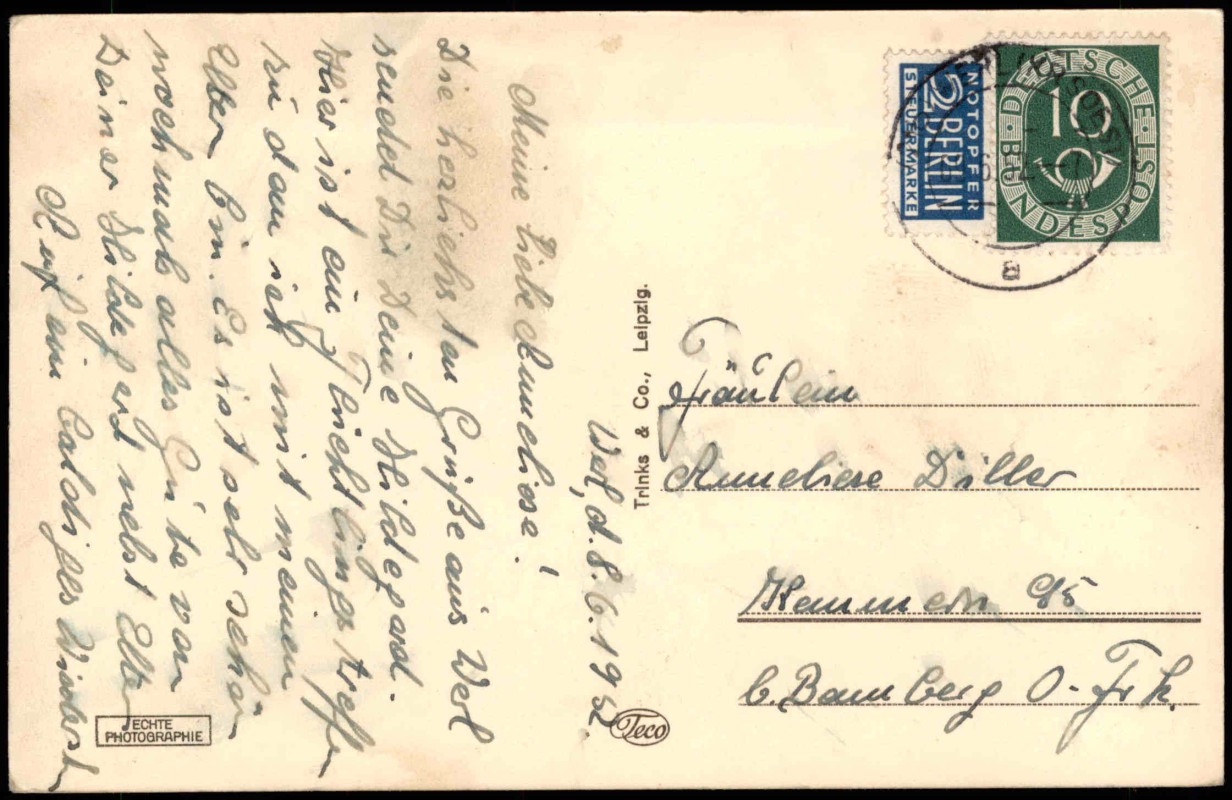 Werl, d. 8.6.1952.
Meine liebe Anneliese!
Die herzlichsten Grüße aus Werl
sendet Dir Deine Hildegard.
Hier ist ein Flüchtlingstreffen
zu dem ich mit meinen
Eltern bin. Es ist sehr schön
nochmals alles Gute von
Deiner Hildegard nebst Eltern
Auf ein baldiges Wiederseh
ECHTE
PHOTOGRAPHIE
Trinks & Co., Leipzig.
Teco
NOTOPFER
2 BERLIN
STEUERMARKE
DEUTSCHE
10
BUNDESPOST
a
Fräulein
Anneliese Diller
Kammern 95
b. Bamberg O-Frk.